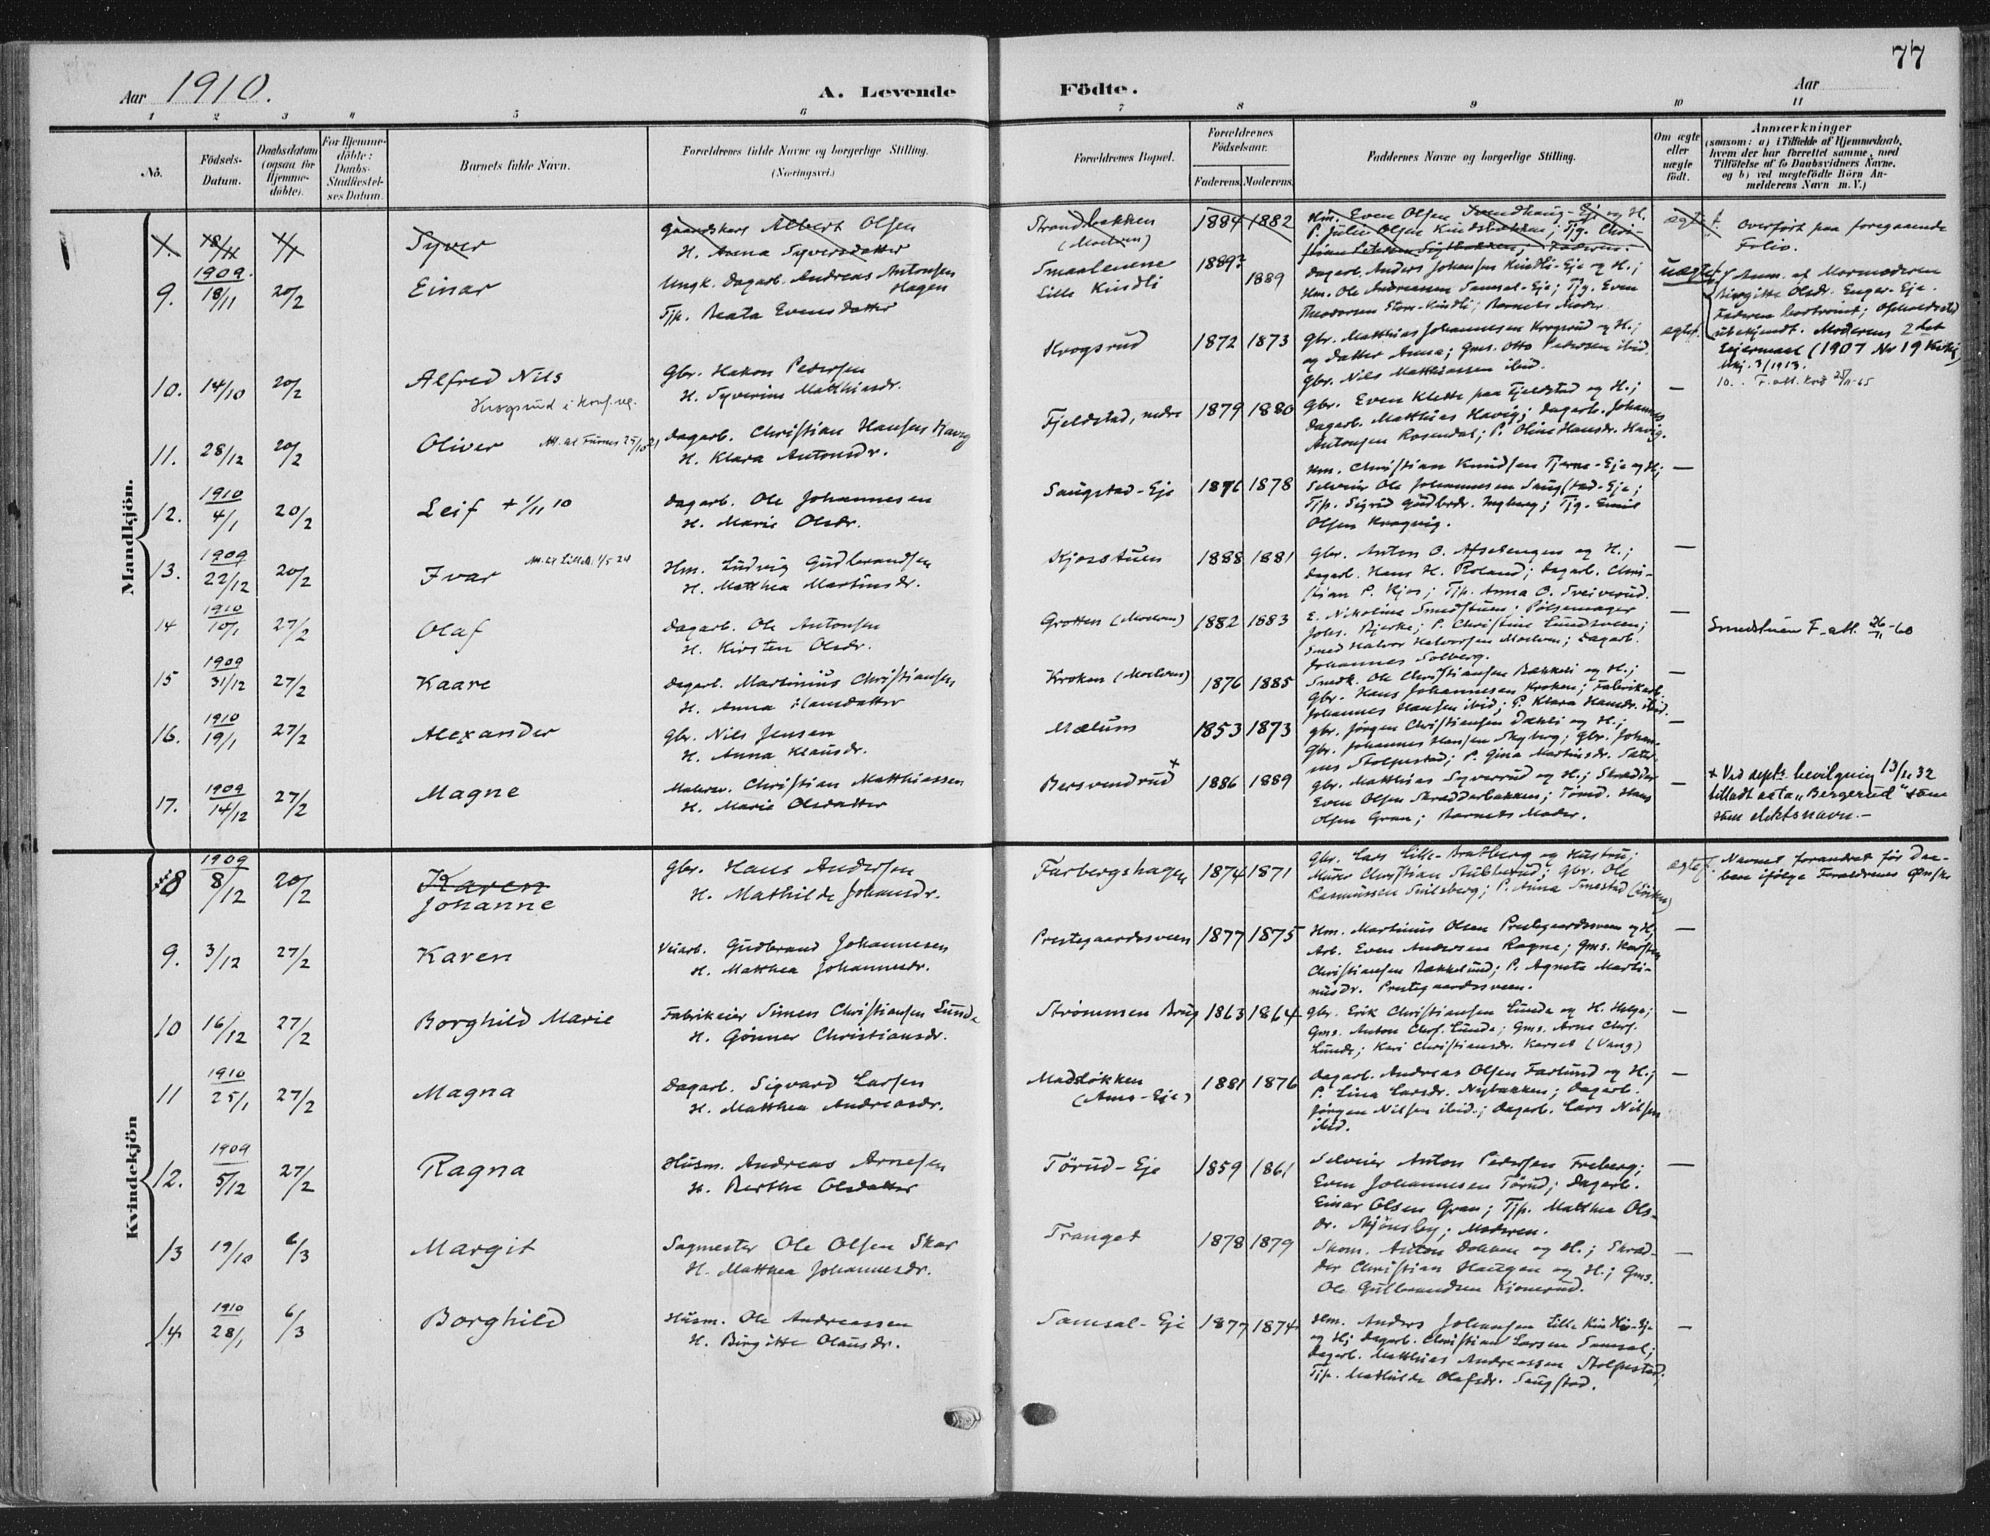 77
Aar 1910.
A. Levende Födte.
Aar
1 2 3 4 5 6 7 8 9 10 11
No.
Födsels-Datum.
Daabsdatum (ogsaa for Hjemmedöbte).
For Hjemmedöbte: Daabs-Stadfæstelses Datum.
Barnets fulde Navn.
Forældrenes fulde Navne og borgerlige Stilling. (Næringsvei.)
Forældrenes Bopæl.
Forældrenes Födselsaar.
Faderens. Moderens.
Faddernes Navne og borgerlige Stilling.
Om ægte eller uægte födt.
Anmærkninger
(saasom: a) i Tilfælde af Hjemmedaab, hvem der har forrettet samme, med Tilföielse af to Daabsvidners Navne. og b) ved uægtefödte Börn Anmelderens Navn m. V.)
Mandkjön.
18/11
Syver
Gaardskarl Albert Olsen
H. Anna Syversdatter
Strandbakken
(Moelven)
1884 1882
Hm. Even Olsen
ægtef.
Overført paa foregaaende
Folio.
9.
1909.
18/11
20/2
Einar
Ungk. dagarb. Andreas Antonsen
Hagen
Tjp. Beata Evensdatter
Smaalenene
Lille Kindli
1889?
1889
dagarb. Anders Johansen Kindli-Eje og H.;
Hm. Ole Andreassen Samsal-Eje; Tjg. Even
Theodorsen Store-Kindli; Barnets Moder.
uægtef.
Anm. af Mormoderen
Birgitte Olsdr. Enger-Eje.
Faderen bortreist; Opholdssted
ubekjendt. Moderens 2det
Leiermaal (1907 Nr 19
10.
14/10
20/2
Alfred Nils
Krogsrud i konf.
Gbr. Hakon Pedersen
H. Syverine Matthiasdr.
Krogsrud
1872 1873
Gbr. Matthias Johannesen Krogsrud og H.;
og datter Anna; Gms. Otto Pedersen ibid.
Gbr. Nils Matthiassen ibid.
ægtef.
11.
28/12
20/2
Oliver
dagarb. Christian Hansen Havig
H. Klara Antonsdr.
Fjeldstad, nedre
1879 1880
Gbr. Even Klette paa Fjeldstad og H.;
dagarb. Matthias Havig; dagarb. Johannes
Antonsen Rosendal; P. Oline Hansdr. Havig.
—
12.
1910
4/1
20/2
Leif + 1/11 10
dagarb. Ole Johannesen
H. Marie Olsdr.
Saugstad-Eje
1876 1878
Hm. Christian Knudsen Tjerne-Eje og H;
Selveier Ole Johannesen Saugstad-Eje;
Tjp. Sigrid Gudbrdr. Ingberg; Tjg. Emil
Olsen
—
13.
1909
22/12
20/2
Ivar
Hm. Ludvig Gudbrandsen
H. Matthea Martinsdr.
Kjosstuen
1888 1881
Gbr. Anton O. Afsetengen og H.;
dagarb. Hans H. Roland; dagarb. Christian P. Kjos; Tjp. Anna O. Sveiverud.
—
14
1910
10/1
27/2
Olaf
dagarb. Ole Antonsen
H. Kirsten Olsdr.
Grotten (Moelven)
1882 1883
E. Nikoline Smedstuen; Pølsemager
Johs. Bjerke; P. Christine Lundsveen;
Smed Halvor Halvorsen Moelven; dagarb.
Johannes Solberg.
—
Smedstuen F. att. 26/11-60
15
1909
31/12
27/2
Kaare
dagarb. Martinius Christiansen
H. Anna Hansdatter
Kroken (Moelven)
1876 1885
Smedk. Ole Christiansen Bækkeli og H.;
Gbr. Hans Johannesen Kroken; Fabrikarb.
Johannes Hansen ibid; P. Klara Hansdr. ibid.
—
16.
1910
19/1
27/2
Alexander
Gbr. Nils Jensen
H. Anna Klausdr.
Mælum
1853 1873
Gbr. Jørgen Christiansen Dæhli og H.;
Gbr. Johannes Hansen Skyberg; Gbr. Johannes Stolpestad; P. Gina Martinsdr.
—
17.
1909
14/12
27/2
Magne
Malersv. Christian Matthiassen
H. Marie Olsdatter
Bersvendrud +
1886 1889
Gbr. Matthias Syverud og H.; Skrædder
Even Olsen Skrædderbakken; Tømd. Hans
Olsen Gran; Barnets Moder.
—
+ Ved dept.s bevilgning 13/2 32
tilladt anta "Bergerud"
som slektsnavn.-
Kvindekjön
8
1909
8/12
20/2
Karen
Johanne
Gbr. Hans Andersen
H. Mathilde Johansdr.
Farbergshagen
1874 1871
Gbr. Lars Lille-Bratberg og Hustru;
Murer Christian Stubberud; Gbr. Ole
Rasmussen Snilsberg; P. Anna
ægtef.
Navnet forandret før Daaben ifølge Forældrenes Ønske
9.
3/12
27/2
Karen
Veiarb. Gudbrand Johannesen
H. Matthea Johannesdr.
Prestegaardssveen
1877 1875
Hm. Martinius Olsen Prestegaardssveen og H;
Arb. Even Andersen Ragne; Gms. Karsten
Christiansen Bækkelund; P. Agnete Martinusdr. Prestegaardssveen.
—
10
16/12
27/2
Borghild Marie
Fabrikeier Simen Christiansen Lunde
H. Gønner Christiansdr.
Strømmen Brug
1863 1864
Gbr. Erik Christiansen Lunde og H. Helga;
Gms. Anton Chrs. Lunde; Gms. Arne Chrs.
Lunde; Kari Christiansdr. Karset (Vang)
—
11
1910
25/1
27/2
Magna
dagarb. Sigvard Larsen
H. Matthea Andreasdr.
Madsløkken
(Ams-Eje)
1881 1876
dagarb. Andreas Olsen Farlund og H.;
P. Lina Larsdr. Nybakken; dagarb.
Jørgen Nilsen ibid.; dagarb. Lars Nilsen
ibid.
—
12.
1909
5/12
27/2
Ragna
Husm. Andreas Arnesen
H. Berthe Olsdatter
Tørud-Eje
1859 1861
Selveier Anton Pedersen Freberg;
Even Johannesen Tørud; dagarb.
Einar Olsen Gran; Tjp. Matthea Olsdr. Skjønsby; Moderen.
—
13
19/10
6/3
Margit
Sagmester Ole Olsen Skar
H. Matthea Johannesdr.
Tranget
1878 1879
Skom. Anton Dokken og H.; Skrædder Christian Haugen og H.; Gms.
Ole Gulbrandsen Kjonerud.
—
14
1910
28/1
6/3
Borghild
Husm. Ole Andreassen
H. Birgitte Olausdr.
Samsal-Eje
1877 1874
Hm. Anders Johansen Lille Kindlie-Eje
og H; dagarb. Christian Larsen Samsal;
dagarb. Matthias Andreassen Stolpestad;
Tjp. Mathilde Olafsdr. Saugstad.
—